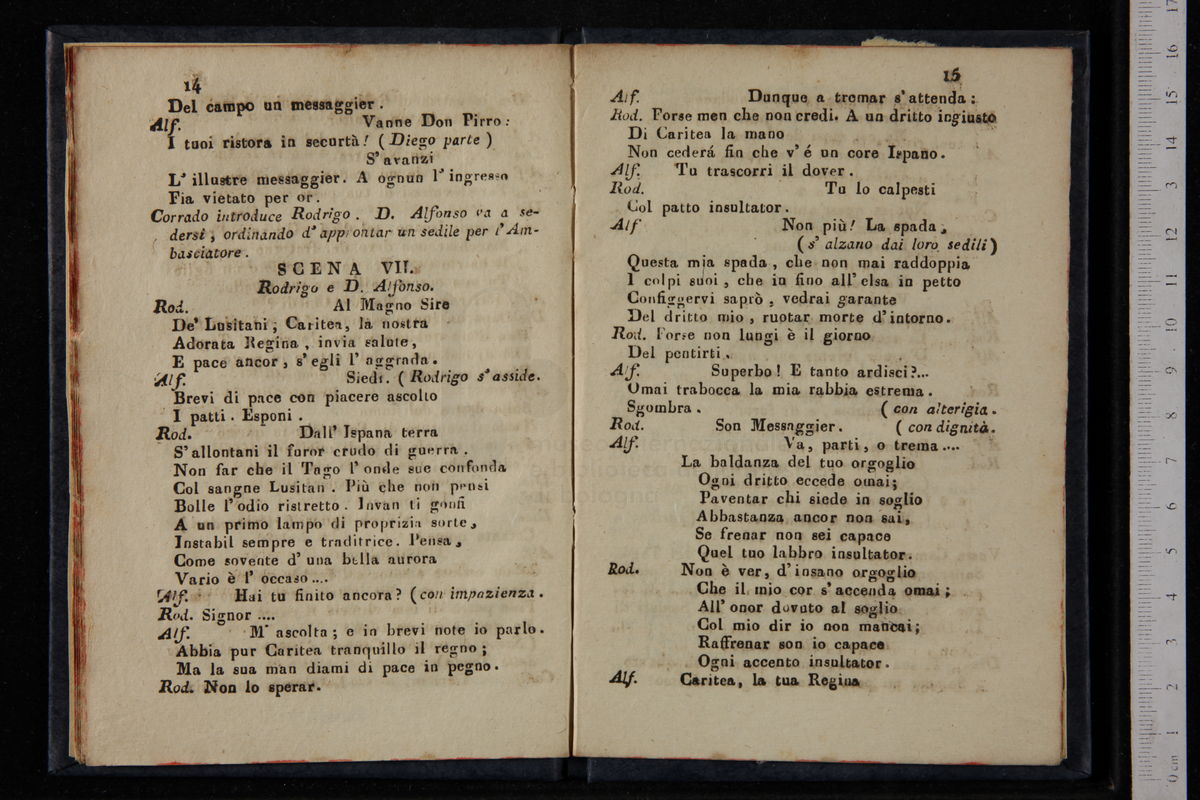 14
Del campo un messaggier.
Alf. Vanne Don Pirro:
I tuoi ristora in securtà! (Diego parte)
S' avanzi
L' illustre messaggier. A ognun l' ingresso
Fia vietato per or.
Corrado introduce Rodrigo. D. Alfonso va a se-
dersi, ordinando d' approntar un sedile per l' Am-
basciatore.
SCENA VII.
Rodrigo e D. Alfonso.
Rod. Al Magno Sire
De' Lusitani, Caritea, la nostra
Adorata Regina, invia salute,
E pace ancor, s' egli l' aggrada.
Alf. Siedi. (Rodrigo s' asside.
Brevi di pace con piacere ascolto
I patti. Esponi.
Rod. Dall' Ispana terra
S' allontani il furor crudo di guerra.
Non far che il Tago l' onde sue confonda
Col sangne Lusitan. Più che non pensi
Bolle l' odio ristretto. Invan ti gonfi
A un primo lampo di proprizia sorte,
Instabil sempre e traditrice. Pensa,
Come sovente d' una bella aurora
Vario è l' occaso....
Alf. Hai tu finito ancora? (con impazienza.
Rod. Signor ....
Alf. M' ascolta; e in brevi note io parlo.
Abbia pur Caritea tranquillo il regno;
Ma la sua man diami di pace in pegno.
Rod. Non lo sperar.
15
Alf. Dunque a tremar s' attenda:
Rod. Forse men che non credi. A un dritto ingiusto
Di Caritea la mano
Non cederá fin che v' é un core Ispano.
Alf. Tu trascorri il dover.
Rod. Tu lo calpesti
Col patto insultator.
Alf Non più! La spada,
(s' alzano dai loro sedili)
Questa mia spada, che non mai raddoppia
I colpi suoi, che in fino all' elsa in petto
Configgervi saprò, vedrai garante
Del dritto mio, ruotar morte d' intorno.
Rod. Forse non lungi è il giorno
Del pentirti.
Alf. Superbo! E tanto ardisci?...
Omai trabocca la mia rabbia estrema.
Sgombra. (con alterigia.
Rod. Son Messaggier. (con dignità.
Alf. Va, parti, o trema....
La baldanza del tuo orgoglio
Ogni dritto eccede omai;
Paventar chi siede in soglio
Abbastanza ancor non sai,
Se frenar non sei capace
Quel tuo labbro insultator.
Rod. Non è ver, d' insano orgoglio
Che il mio cor s' accenda omai;
All' onor dovuto al soglio
Col mio dir io non mancai;
Raffrenar son io capace
Ogni accento insultator.
Alf. Caritea, la tua Regina